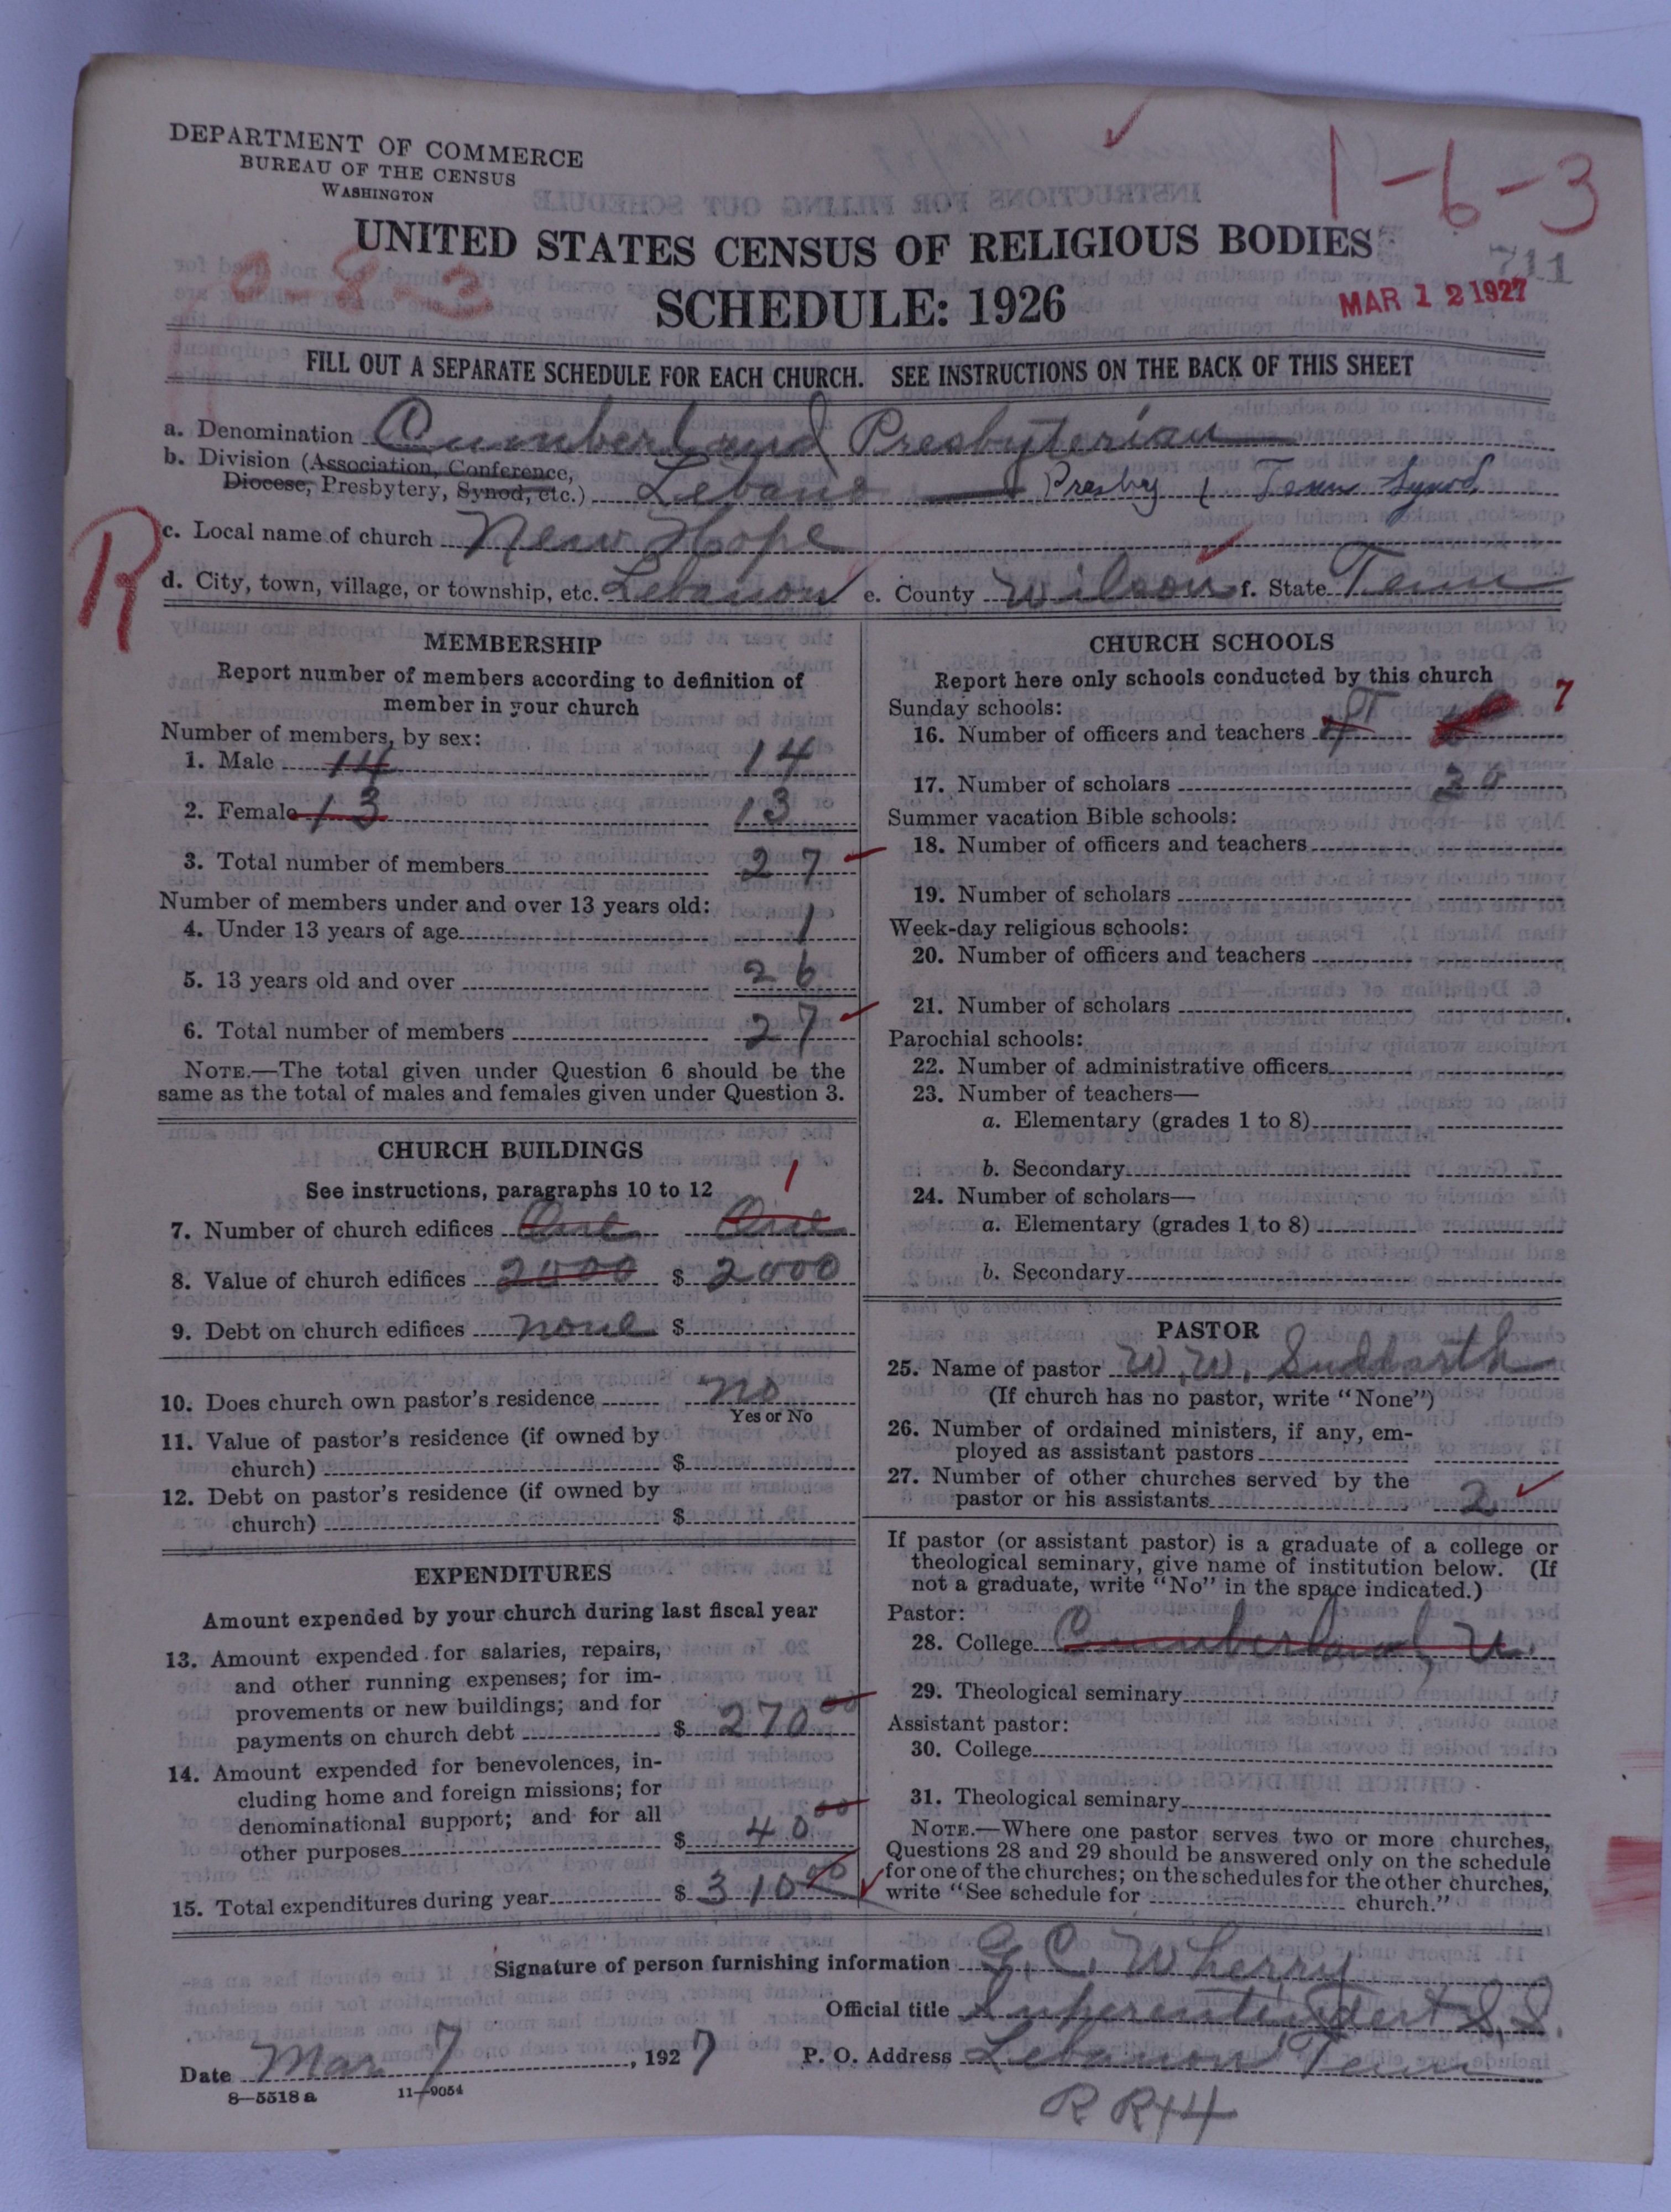 DEPARTMENT OF COMMERCE
BUREAU OF THE CENSUS
WASHINGTON
1-6-3
UNITED STATES CENSUS OF RELIGIOUS BODIES
711
SCHEDULE: 1926
MAR 12 1927
FILL OUT A SEPARATE SCHEDULE FOR EACH CHURCH. SEE INSTRUCTIONS ON THE BACK OF THIS SHEET
a. Denomination Cumberland Presbyterian
b. Division (Association, Conference,
Diocese, Presbytery, Synod, etc.) Lebano Presby Tenn Synod
c. Local name of church New Hope
R
d. City, town, village, or township, etc. Lebanon e. County Wilson f. State Tenn
MEMBERSHIP
Report number of members according to definition of
member in your church
Number of members, by sex:
1. Male 14 14
2. Female 13 13
3. Total number of members 27
Number of members under and over 13 years old:
4. Under 13 years of age 1
5. 13 years old and over 26
6. Total number of members 27
NOTE.—The total given under Question 6 should be the
same as the total of males and females given under Question 3.
CHURCH BUILDINGS
See instructions, paragraphs 10 to 12 1
7. Number of church edifices One One
8. Value of church edifices 2000 $ 2000
9. Debt on church edifices none $
10. Does church own pastor's residence no
Yes or No
11. Value of pastor's residence (if owned by
church) $
12. Debt on pastor's residence (if owned by
church) $
EXPENDITURES
Amount expended by your church during last fiscal year
13. Amount expended for salaries, repairs,
and other running expenses; for im-
provements or new buildings; and for
payments on church debt $ 270 00
14. Amount expended for benevolences, in-
cluding home and foreign missions; for
denominational support; and for all
other purposes $ 40 00
15. Total expenditures during year $ 310 00
CHURCH SCHOOLS
Report here only schools conducted by this church
Sunday schools:
16. Number of officers and teachers 7
17. Number of scholars 30
Summer vacation Bible schools:
18. Number of officers and teachers
19. Number of scholars
Week-day religious schools:
20. Number of officers and teachers
21. Number of scholars
Parochial schools:
22. Number of administrative officers
23. Number of teachers—
a. Elementary (grades 1 to 8)
b. Secondary
24. Number of scholars—
a. Elementary (grades 1 to 8)
b. Secondary
PASTOR
25. Name of pastor W. W. Suddarth
(If church has no pastor, write "None")
26. Number of ordained ministers, if any, em-
ployed as assistant pastors
27. Number of other churches served by the
pastor or his assistants 2
If pastor (or assistant pastor) is a graduate of a college or
theological seminary, give name of institution below. (If
not a graduate, write "No" in the space indicated.)
Pastor:
28. College Cumberland U.
29. Theological seminary
Assistant pastor:
30. College
31. Theological seminary
NOTE.—Where one pastor serves two or more churches,
Questions 28 and 29 should be answered only on the schedule
for one of the churches; on the schedules for the other churches,
write "See schedule for church."
Signature of person furnishing information G. C. Wherry
Official title Superintendent S. S.
Date Mar 7, 1927 P. O. Address Lebanon Tenn
8—5518 a 11—9054
R R 4